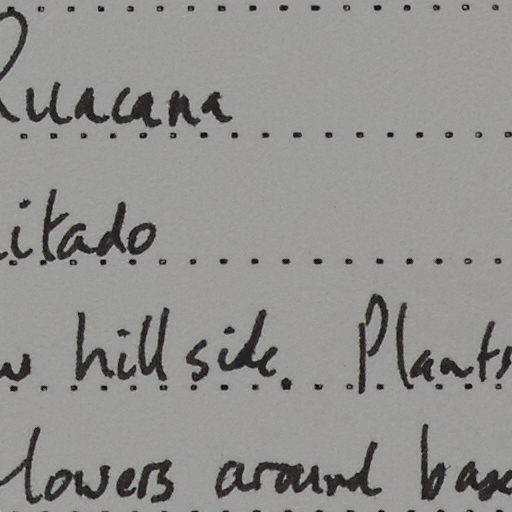 Ruacana
itado
w hillside. Plants
lowers around base